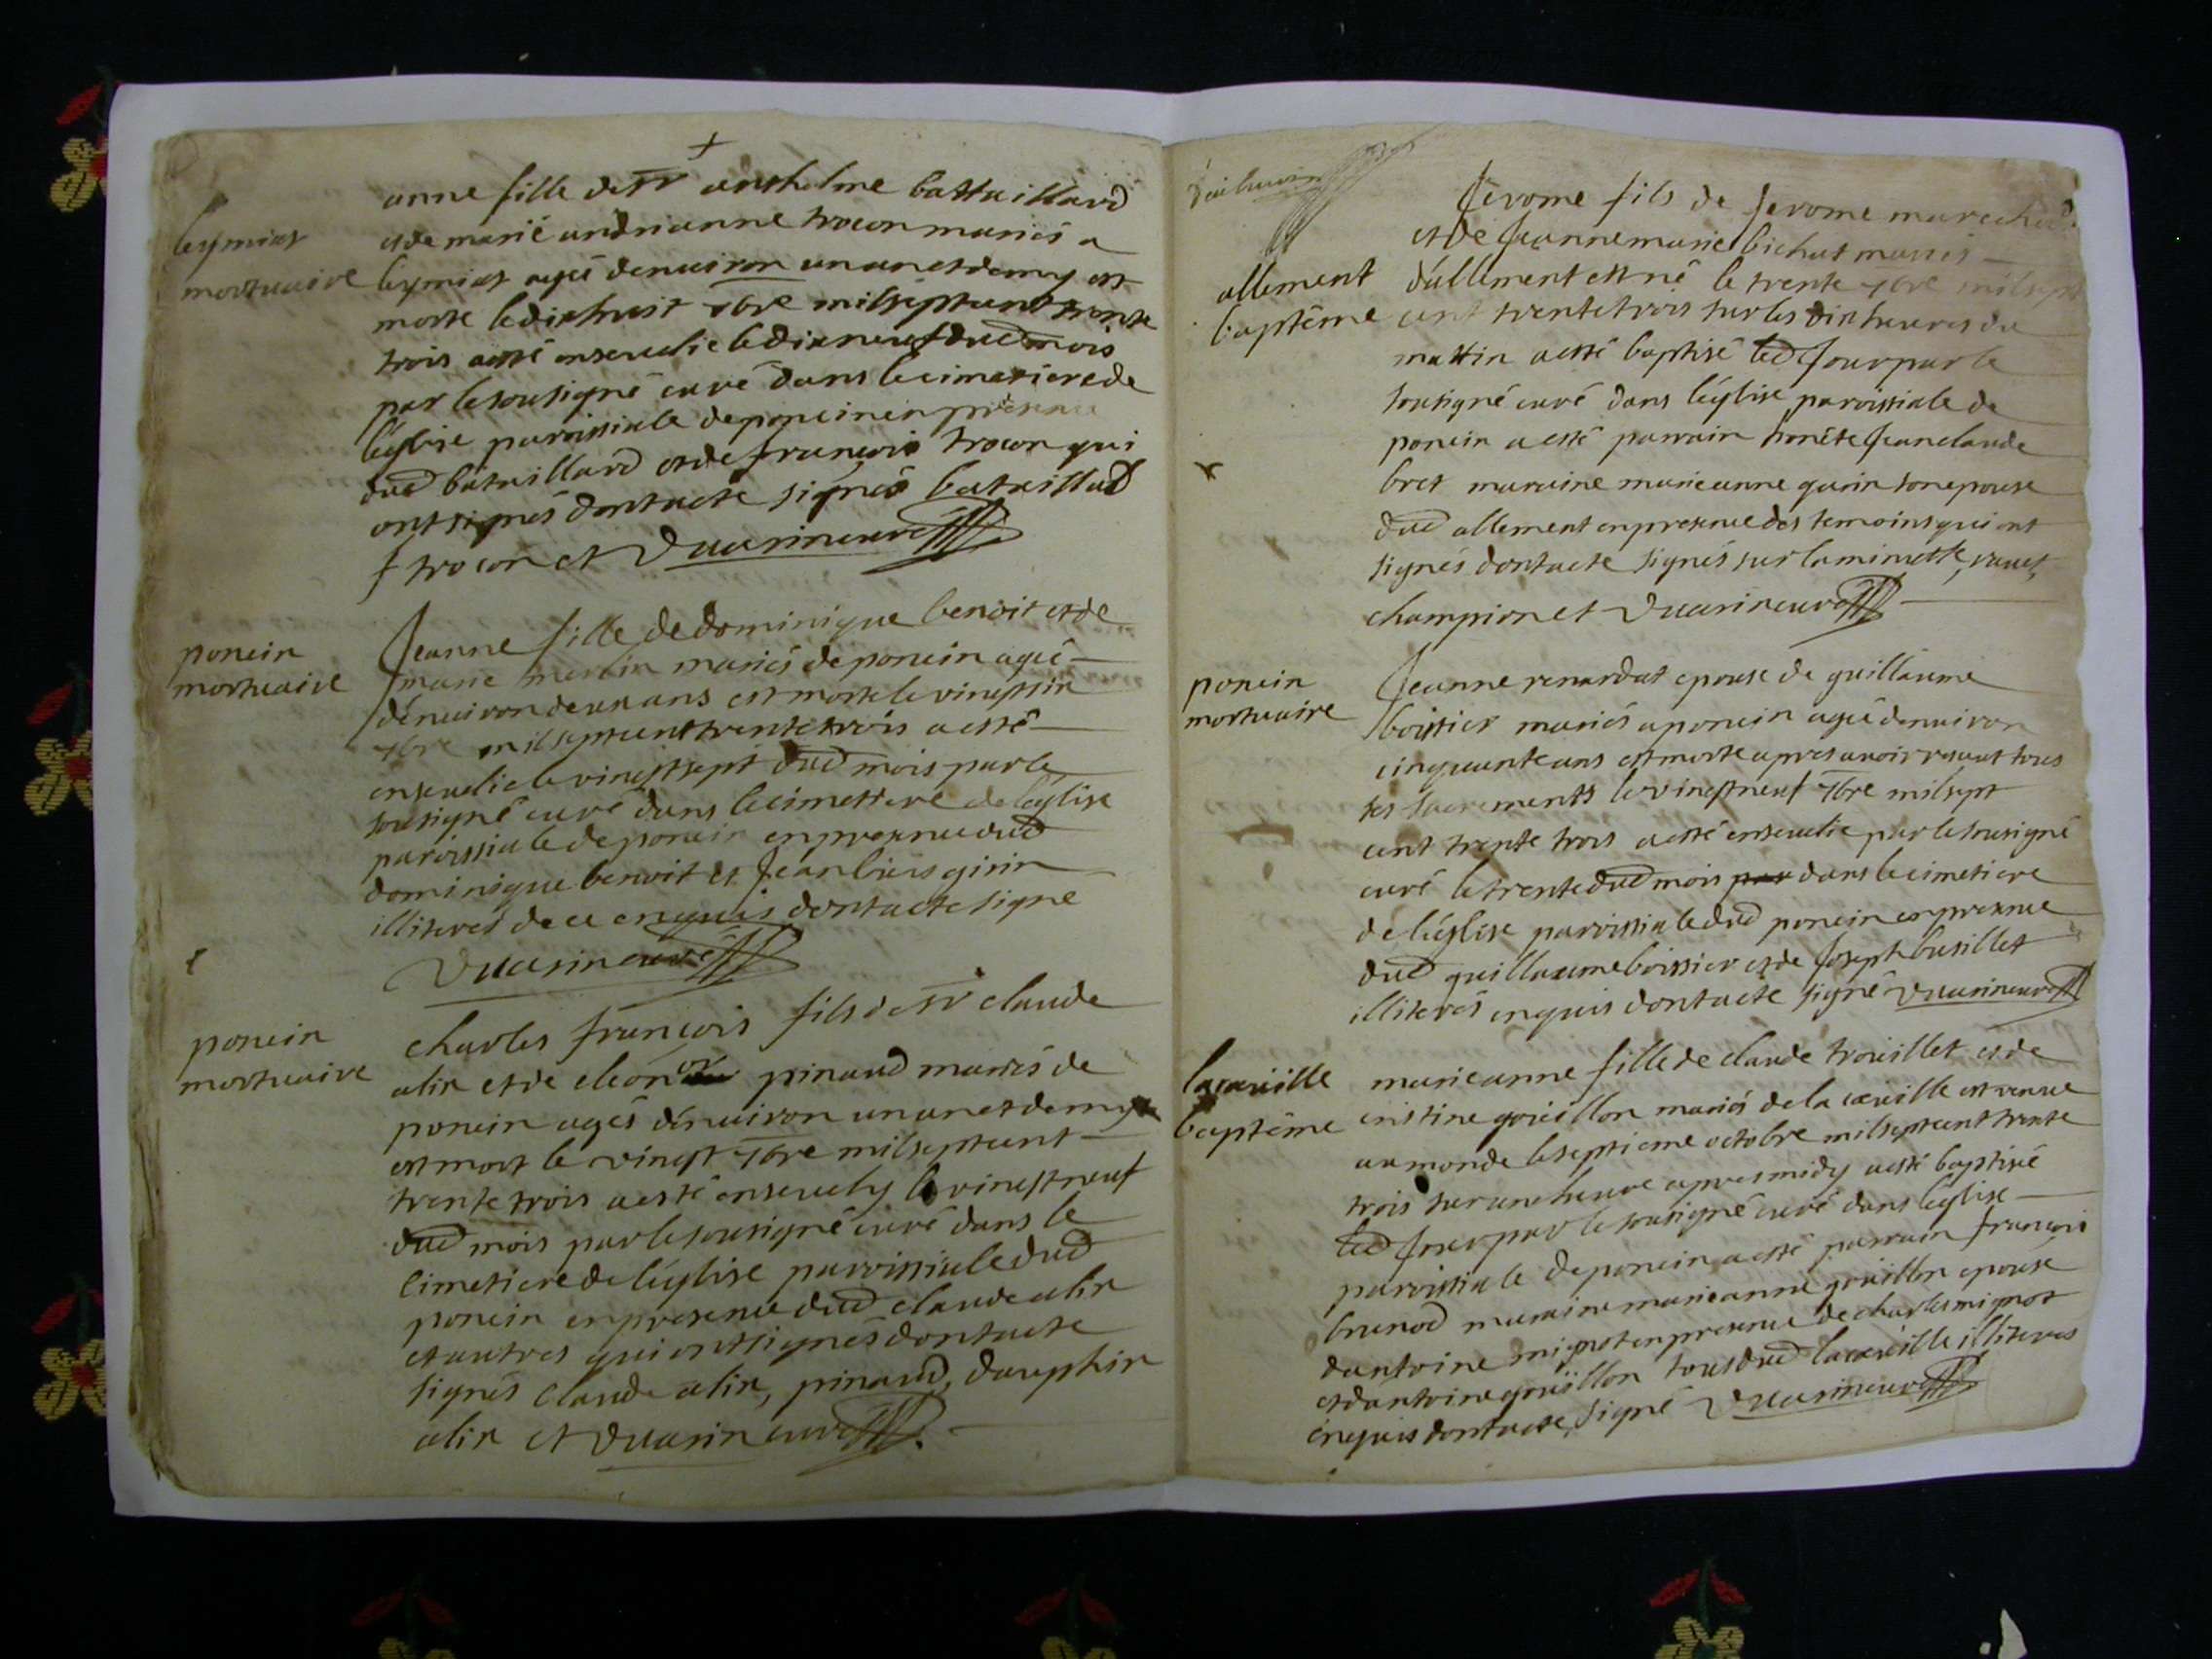 anne fille de Sr anthelme battaillard
leymiat
et de marie andrianne trocon mariés a
mortuaire
leymiat agée denuiron un an et demy est
morte le dix huit 7bre mil sept cent trente
trois a esté enseuelie le dix neuf dud mois
par le sousigné curé dans le cimetiere de
l'église paroissiale de poncin en presence
dud bataillard et de françois trocon qui
ont signés dont acte signés bataillard
f trocon et Vuarin curé
poncin
mortuaire
Jeanne fille de dominique benoit et de
marie merlin mariés de poncin agée
dénuiron deux ans est morte le vingt six
7bre mil sept cent trente trois a esté
enseuelie le vingt sept dud mois par le
sousigné curé dans le cimettiere de léglise
paroissiale de poncin en presence dud
dominique benoit et Jean girin
illiterés de ce enquis dont acte signé
Vuarin curé
poncin
mortuaire
charles françois fils de Sr claude
alix et de eleonor pinaud mariés de
poncin agés dénuiron un an et demy
est mort le vingt 7bre mil sept cent
trente trois a esté enseuely le vingt neuf
dud mois par le sousigné curé dans le
cimetiere de léglise paroissiale dud
poncin en presence dud claude alix
et autres qui ont signés dont acte
signés claude alix, pinaud, dauphin
alix et Vuarin curé
Jerome fils de Jerome marechal
et de Jeanne marie bichat mariés
allement
baptême
d'allement est né le trente 7bre mil sept
cent trente trois sur les dix heures du
mattin a esté baptisé led Jour par le
sousigné curé dans l'église paroissiale de
poncin a esté parrain honéte Jean claude
bret maraine marie anne garin son epouse
dud allement en presence des temoins qui ont
signés dont acte signés sur la minutte,
champion et Vuarin curé
poncin
mortuaire
Jeanne renardat epouse de guillaume
boissier mariés a poncin agée denuiron
cinquante ans est morte apres auoir receut tous
ses sacrements le vingt neuf 7bre mil sept
cent trente trois a esté enseuelie par le sousigné
curé le trente dud mois par dans le cimetiere
de l'église paroissiale dud poncin en presence
dud guillaume boissier et de Joseph busillet
illiterés enquis dont acte signé Vuarin curé
lacueille
baptéme
marie anne fille de claude trouillet et de
cristine gouillon mariés de la cueille est venue
au monde le septieme octobre mil sept cent trente
trois sur une heure apres midy a esté baptisée
led Jour par le sousigné curé dans l'eglise
paroissiale de poncin a esté parrain françois
brunod maraine marie anne gouillon epouse
dantoine mignot en presence de charles mignot
et dantoine gouillon tous dud lacueille illiteres
enquis dont acte signé Vuarin curé